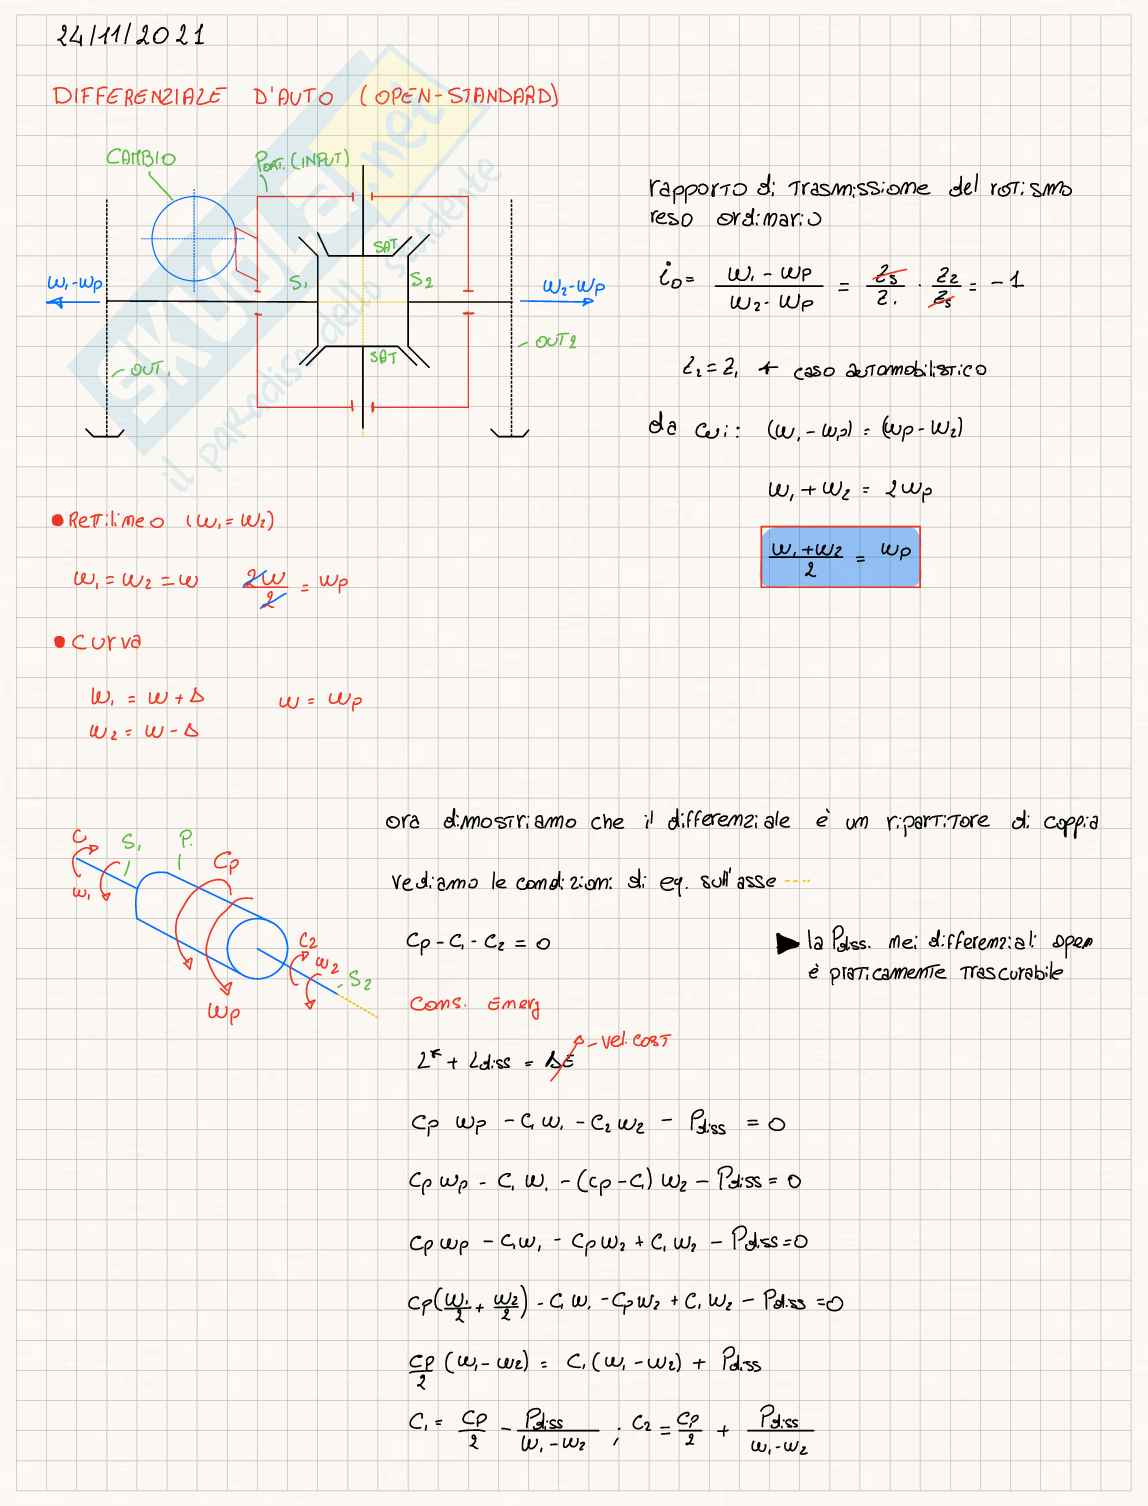 24/11/2021
DIFFERENZIALE D'AUTO (OPEN-STANDARD)
CAMBIO
PORT. (INPUT)
SAT
S₁
S₂
ω₁-ωp
ω₂-ωp
SAT
OUT₁
OUT₂
SKUOLA.net
il paradiso dello studente
rapporto di trasmissione del rotismo
reso ordinario
i₀ = (ω₁ - ωp)/(ω₂ - ωp) = zs/z₁ · z₂/zs = -1
z₂ = z₁ ← caso automobilistico
da cui: (ω₁ - ωp) = (ωp - ω₂)
ω₁ + ω₂ = 2ωp
(ω₁ + ω₂)/2 = ωp
• Rettilineo (ω₁ = ω₂)
ω₁ = ω₂ = ω 2ω/2 = ωp
• Curva
ω₁ = ω + Δ ω = ωp
ω₂ = ω - Δ
ora dimostriamo che il differenziale è un ripartitore di coppia
vediamo le condizioni di eq. sull'asse ----
C₁
S₁
P.
Cp
ω₁
C₂
ω₂
S₂
ωp
Cp - C₁ - C₂ = 0
▶ la Pdiss. nei differenziali open
è praticamente trascurabile
Cons. Energ
L* + Ldiss = ΔE - vel. cost
Cp ωp - C₁ω₁ - C₂ω₂ - Pdiss = 0
Cpωp - C₁ω₁ - (Cp - C₁)ω₂ - Pdiss = 0
Cpωp - C₁ω₁ - Cpω₂ + C₁ω₂ - Pdiss = 0
Cp(ω₁/2 + ω₂/2) - C₁ω₁ - Cpω₂ + C₁ω₂ - Pdiss = 0
Cp/2 (ω₁ - ω₂) = C₁(ω₁ - ω₂) + Pdiss
C₁ = Cp/2 - Pdiss/(ω₁ - ω₂) ; C₂ = Cp/2 + Pdiss/(ω₁ - ω₂)